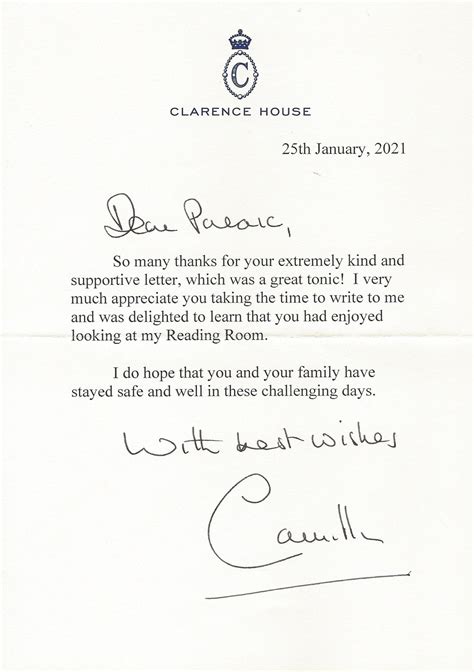 C
CLARENCE HOUSE
25th January, 2021
Dear
So many thanks for your extremely kind and
supportive letter, which was a great tonic! I very
much appreciate you taking the time to write to me
and was delighted to learn that you had enjoyed
looking at my Reading Room.
I do hope that you and your family have
stayed safe and well in these challenging days.
With best wishes
Camilla